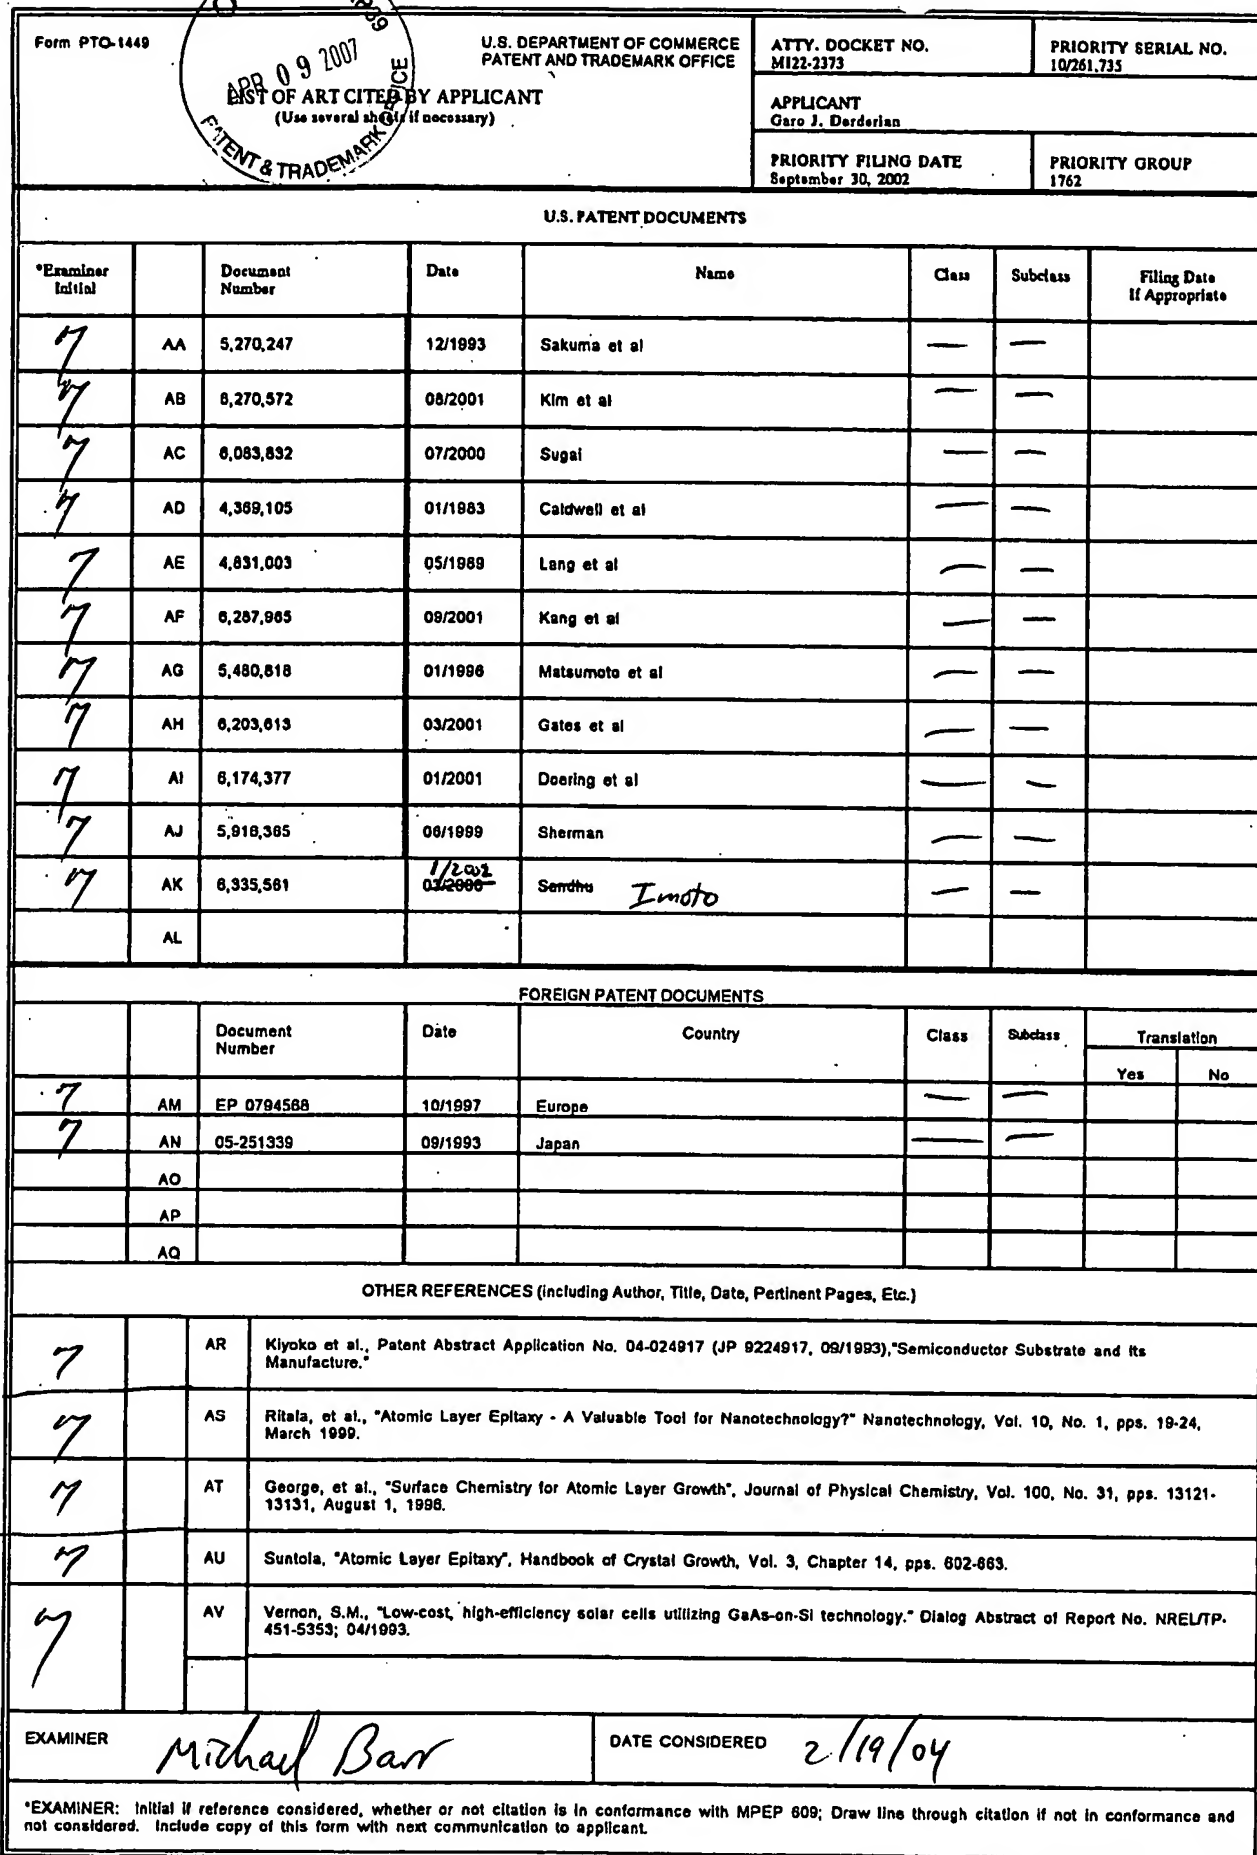 Form PTO-1449
APR 09 2007
PATENT & TRADEMARK OFFICE
U.S. DEPARTMENT OF COMMERCE
PATENT AND TRADEMARK OFFICE
LIST OF ART CITED BY APPLICANT
(Use several sheets if necessary)
ATTY. DOCKET NO.
MI22-2373
PRIORITY SERIAL NO.
10/261,735
APPLICANT
Garo J. Derderian
PRIORITY FILING DATE
September 30, 2002
PRIORITY GROUP
1762
U.S. PATENT DOCUMENTS
*Examiner Initial Document Number Date Name Class Subclass Filing Date If Appropriate
AA 5,270,247 12/1993 Sakuma et al — —
AB 6,270,572 08/2001 Kim et al — —
AC 6,083,832 07/2000 Sugai — —
AD 4,369,105 01/1983 Caldwell et al — —
AE 4,831,003 05/1989 Lang et al — —
AF 6,287,965 09/2001 Kang et al — —
AG 5,480,818 01/1996 Matsumoto et al — —
AH 6,203,613 03/2001 Gates et al — —
AI 6,174,377 01/2001 Doering et al — —
AJ 5,916,365 06/1999 Sherman — —
AK 6,335,561 1/2002 03/2000 Sandhu Imoto — —
AL
FOREIGN PATENT DOCUMENTS
Document Number Date Country Class Subclass Translation
Yes No
AM EP 0794568 10/1997 Europe — —
AN 05-251339 09/1993 Japan — —
AO
AP
AQ
OTHER REFERENCES (including Author, Title, Date, Pertinent Pages, Etc.)
AR Kiyoko et al., Patent Abstract Application No. 04-024917 (JP 9224917, 09/1993),"Semiconductor Substrate and its
Manufacture."
AS Ritala, et al., "Atomic Layer Epitaxy - A Valuable Tool for Nanotechnology?" Nanotechnology, Vol. 10, No. 1, pps. 19-24,
March 1999.
AT George, et al., "Surface Chemistry for Atomic Layer Growth", Journal of Physical Chemistry, Vol. 100, No. 31, pps. 13121-
13131, August 1, 1996.
AU Suntola, "Atomic Layer Epitaxy", Handbook of Crystal Growth, Vol. 3, Chapter 14, pps. 602-663.
AV Vernon, S.M., "Low-cost, high-efficiency solar cells utilizing GaAs-on-Si technology." Dialog Abstract of Report No. NREL/TP-
451-5353; 04/1993.
EXAMINER Michael Barr DATE CONSIDERED 2/19/04
*EXAMINER: Initial if reference considered, whether or not citation is in conformance with MPEP 609; Draw line through citation if not in conformance and
not considered. Include copy of this form with next communication to applicant.